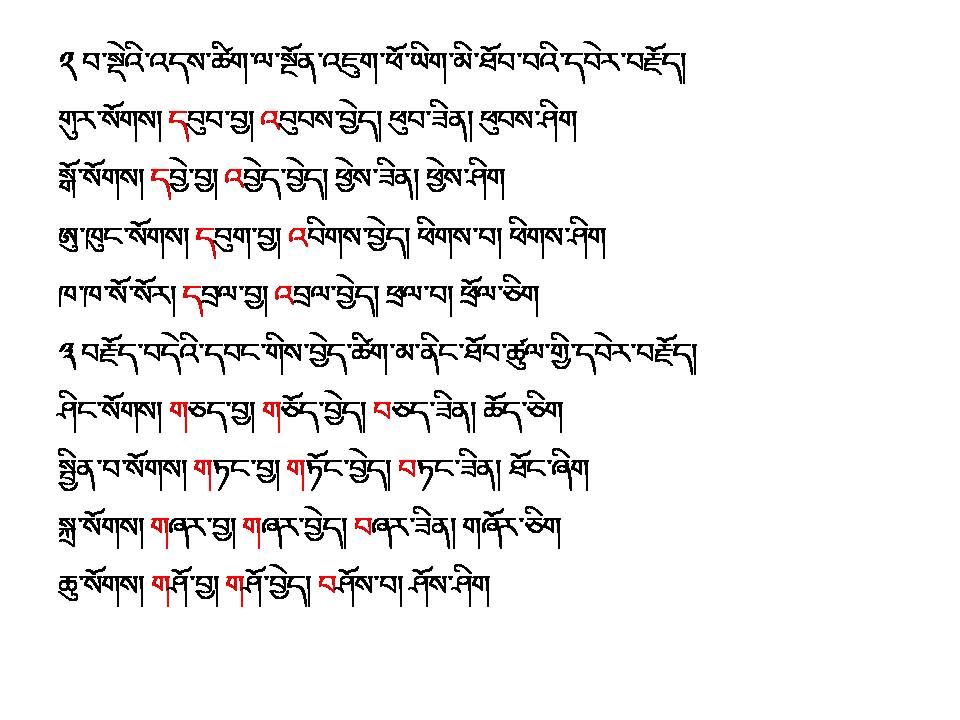 ༢ བ་སྡེའི་འདས་ཚིག་ལ་སྔོན་འཇུག་ཕོ་ཡིག་མི་ཐོབ་བའི་དཔེར་བརྗོད།
གུར་སོགས། དབུབ་བྱ། འབུབས་བྱེད། ཕུབ་ཟིན། ཕུབས་ཤིག
སྒོ་སོགས། དབྱེ་བྱ། འབྱེད་བྱེད། ཕྱེས་ཟིན། ཕྱེས་ཤིག
ཨུ་ཁུང་སོགས། དབུག་བྱ། འབིགས་བྱེད། ཕིགས་བ། ཕིགས་ཤིག
ཁ་ཁ་སོ་སོར། དབྲལ་བྱ། འབྲལ་བྱེད། ཕྲལ་བ། ཕྲོལ་ཅིག
༣ བརྗོད་བདེའི་དབང་གིས་བྱེད་ཚིག་མ་ནིང་ཐོབ་ཚུལ་གྱི་དཔེར་བརྗོད།
ཤིང་སོགས། གཅད་བྱ། གཅོད་བྱེད། བཅད་ཟིན། ཆོད་ཅིག
སྦྱིན་བ་སོགས། གཏང་བྱ། གཏོང་བྱེད། བཏང་ཟིན། ཐོང་ཞིག
སྐྲ་སོགས། གཞར་བྱ། གཞར་བྱེད། བཞར་ཟིན། གཞོར་ཅིག
ཆུ་སོགས། གཤོ་བྱ། གཤོ་བྱེད། བཤོས་བ། ཤོས་ཤིག